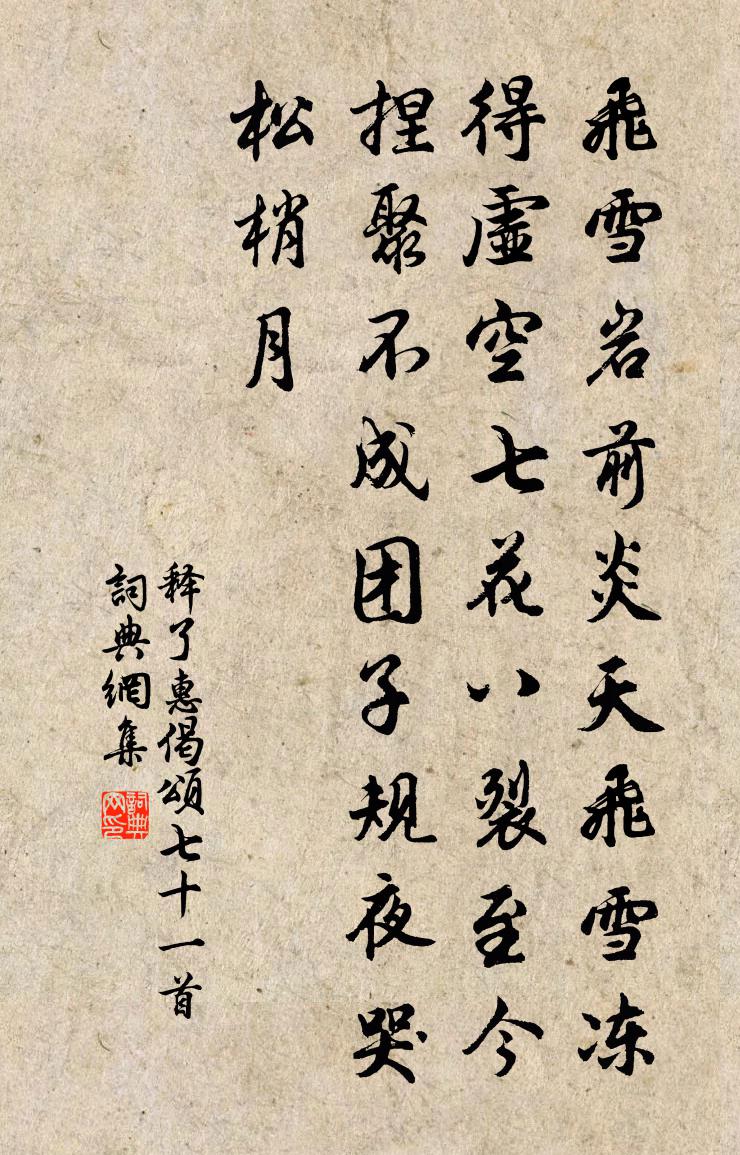 飛雪岩前炎天飛雪冻
得虛空七花八裂至今
捏聚不成团子规夜哭
松梢月
释了惠偈頌七十一首
詞典網集
詞典
网印